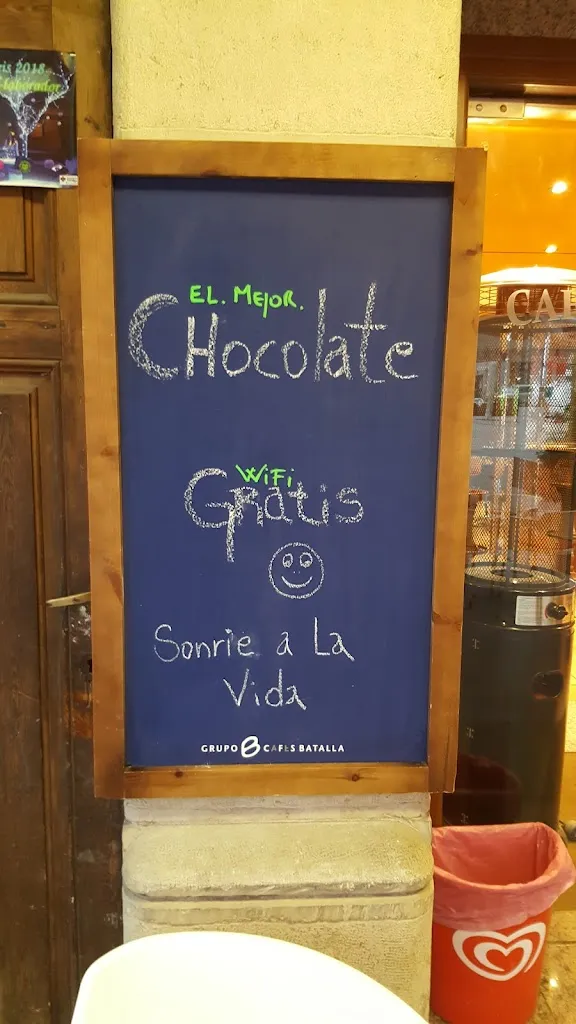 eis 2018
laborador
EL. MEJOR.
CHocolate
WiFi
GRatis
Sonrie a La
Vida
GRUPO CAFES BATALLA
CAF